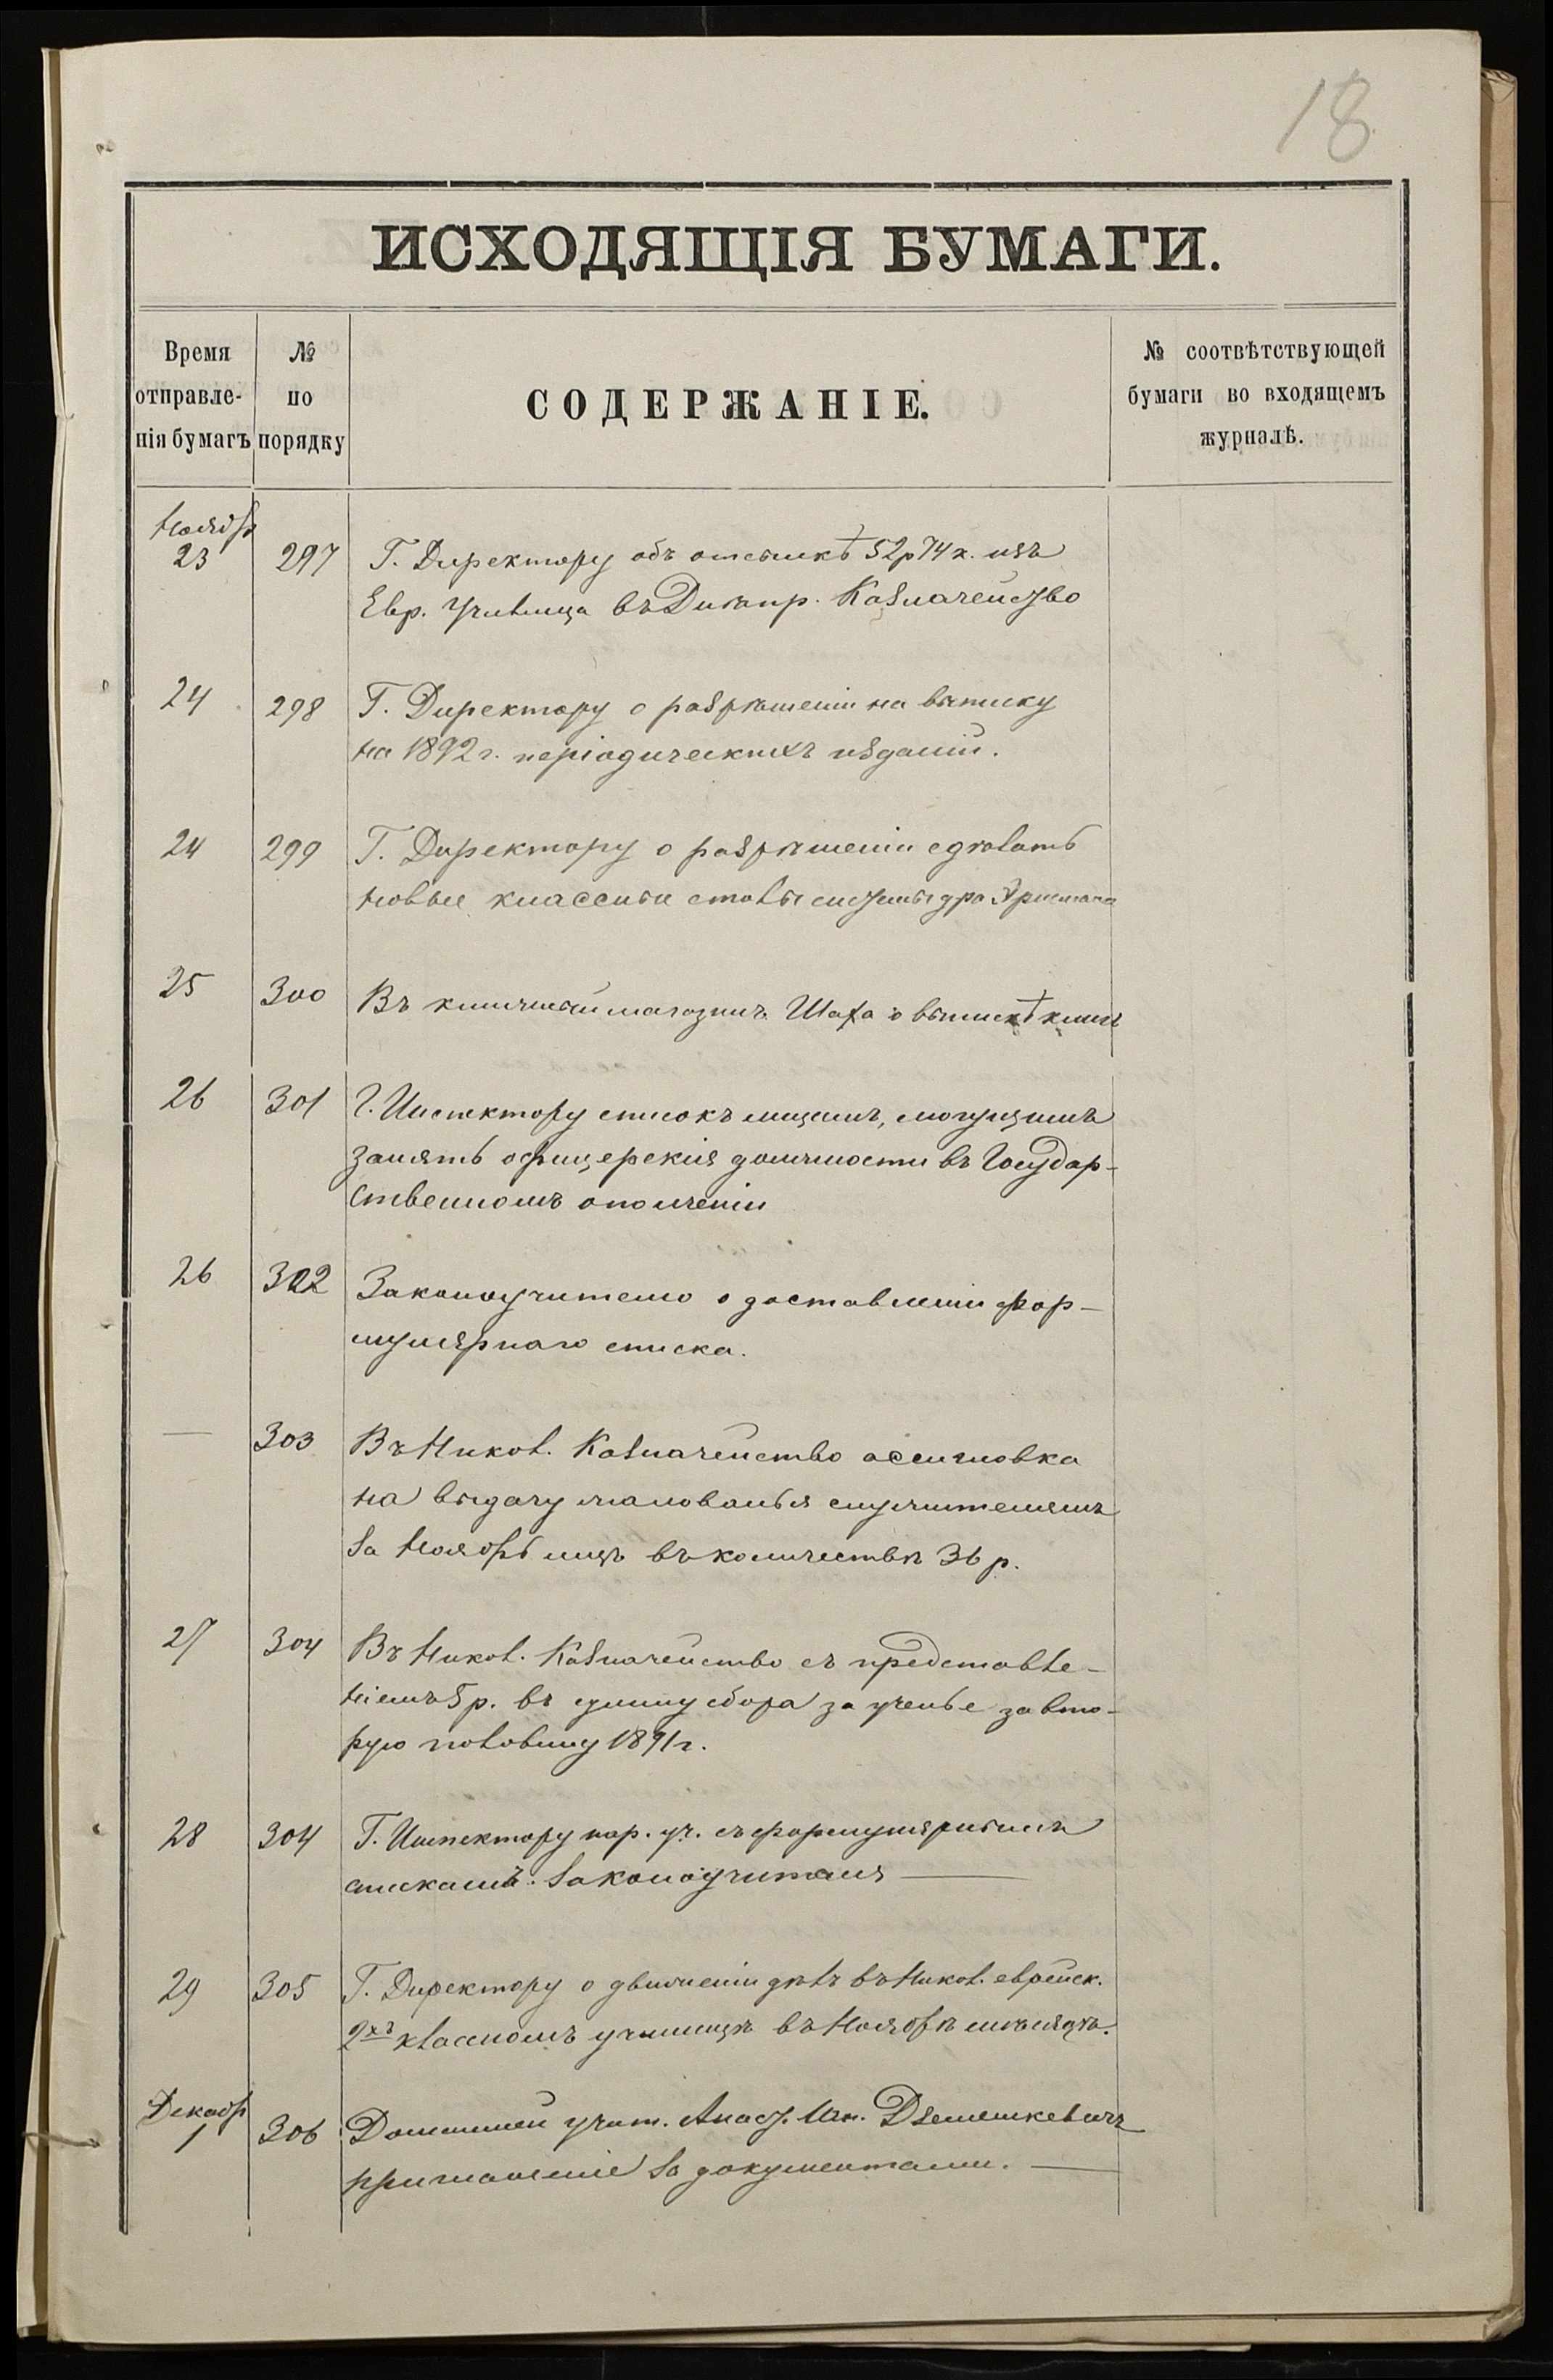 18
ИСХОДЯЩІЯ БУМАГИ.
Время отправле-нія бумагъ
№ по порядку
СОДЕРЖАНІЕ.
№ соотвѣтствующей бумаги во входящемъ журналѣ.
Ноябр
23 297 Г. Директору объ отсылкѣ 52р74к. изъ
Евр. Училища въ Днѣпр. Казначейство
24 298 Г. Директору о разрѣшеніи на выписку
на 1892 г. періодическихъ изданій.
24 299 Г. Директору о разрѣшеніи сдѣлать
новые классные столы системы дра
25 300 Въ книжный магазинъ Шаха о выпискѣ книгъ
26 301 Г. Инспектору списокъ лицамъ, могущимъ
занять офицерскія должности въ Государ-
ственномъ ополченіи
26 302 Законоучителю о доставленіи фор-
мулярнаго списка.
— 303 Въ Никол. Казначейство ассигновка
на выдачу жалованья служителямъ
за Ноябрь мцъ въ количествѣ 36 р.
27 304 Въ Никол. Казначейство съ представле-
ніемъ 5 р. въ сумму сбора за ученье за вто-
рую половину 1891 г.
28 304 Г. Инспектору нар. уч. съ формулярнымъ
спискомъ законоучителя —
29 305 Г. Директору о движеніи дѣлъ въ Никол. еврейск.
2хъ классномъ училищѣ въ Ноябрѣ мѣсяцѣ.
Декабр
1 306 Домашней учит. Анас. Ив.
приглашеніе за документами. —